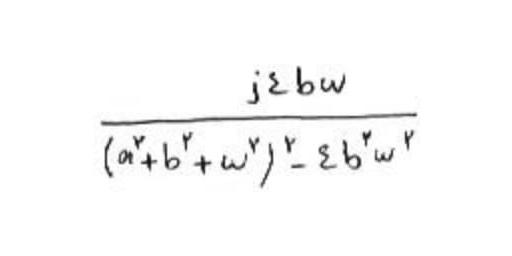 j٤bω
(a^٢+b^٢+ω^٢)^٢-٤b^٢ω^٢